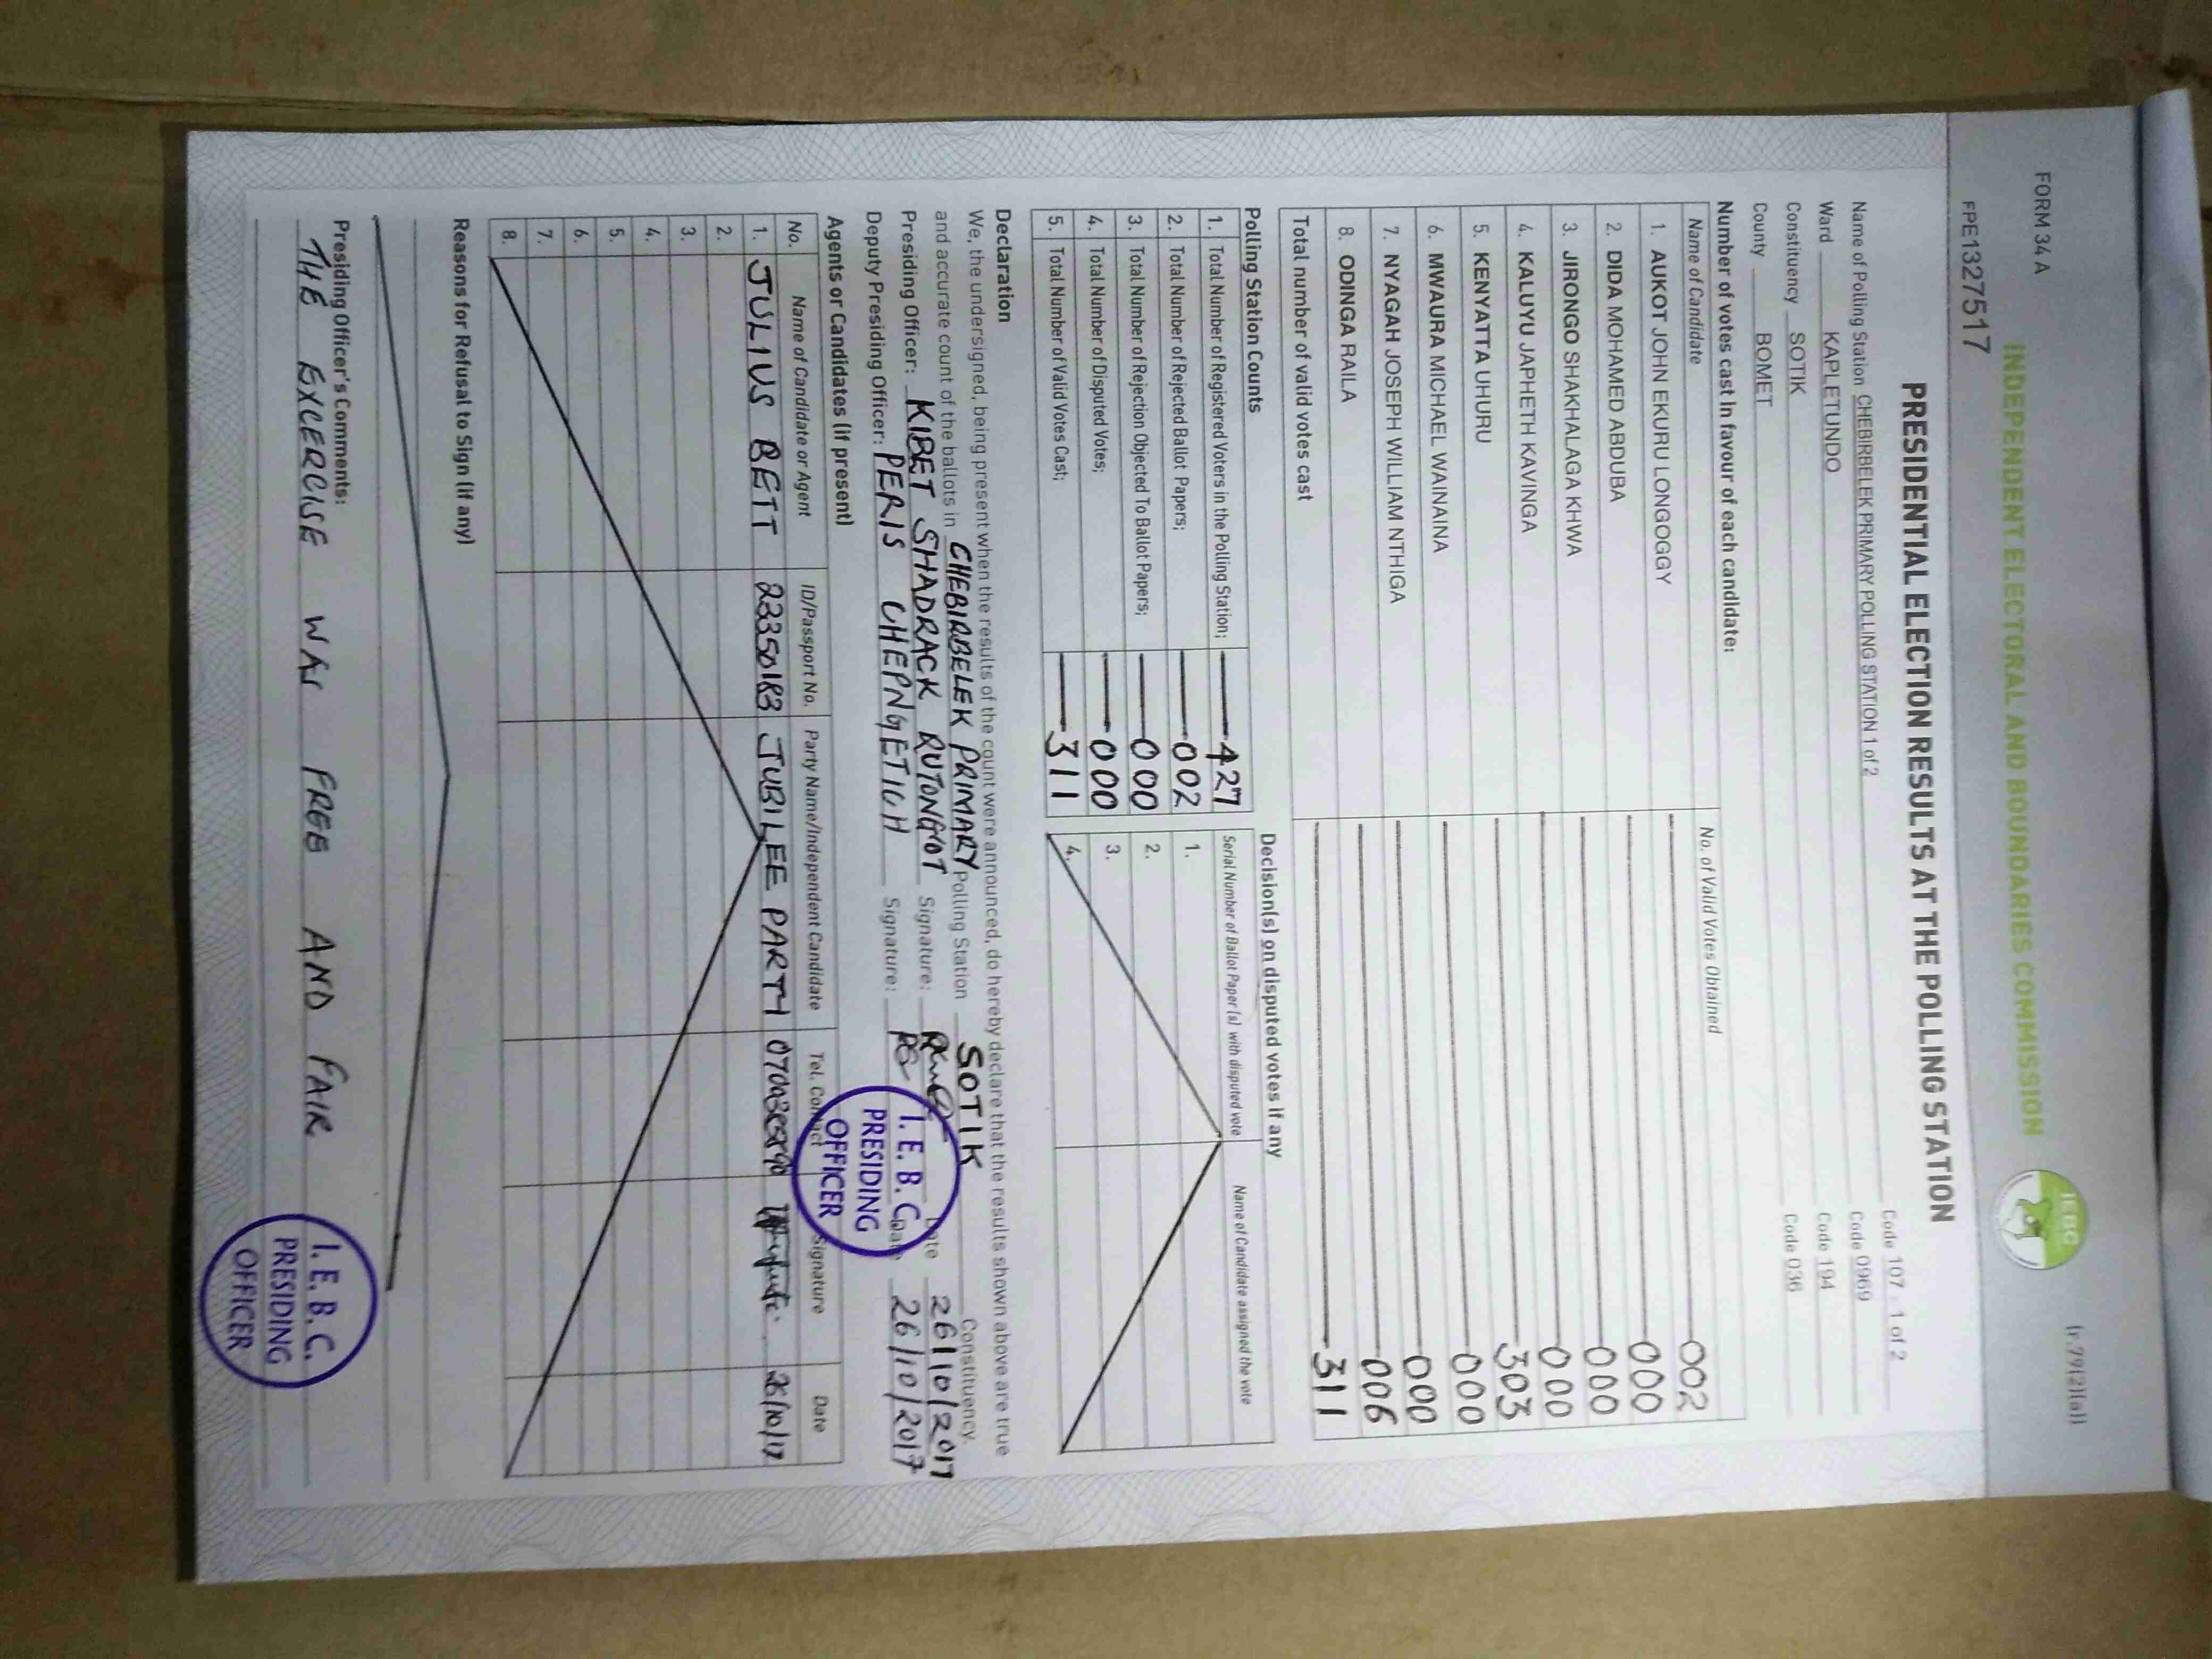 FORM 34 A
(r.79(2)(a))
INDEPENDENT ELECTORAL AND BOUNDARIES COMMISSION
IEBC
FPE1327517
PRESIDENTIAL ELECTION RESULTS AT THE POLLING STATION
Name of Polling Station CHEBIRBELEK PRIMARY POLLING STATION 1 of 2 Code 107 - 1 of 2
Ward KAPLETUNDO Code 0969
Constituency SOTIK Code 194
County BOMET Code 036
Number of votes cast in favour of each candidate:
Name of Candidate No. of Valid Votes Obtained
1. AUKOT JOHN EKURU LONGOGGY 002
2. DIDA MOHAMED ABDUBA 000
3. JIRONGO SHAKHALAGA KHWA 000
4. KALUYU JAPHETH KAVINGA 000
5. KENYATTA UHURU 303
6. MWAURA MICHAEL WAINAINA 000
7. NYAGAH JOSEPH WILLIAM NTHIGA 000
8. ODINGA RAILA 006
Total number of valid votes cast 311
Polling Station Counts
1. Total Number of Registered Voters in the Polling Station; 427
2. Total Number of Rejected Ballot Papers; 002
3. Total Number of Rejection Objected To Ballot Papers; 000
4. Total Number of Disputed Votes; 000
5. Total Number of Valid Votes Cast; 311
Decision(s) on disputed votes if any
Serial Number of Ballot Paper(s) with disputed vote Name of Candidate assigned the vote
1.
2.
3.
4.
Declaration
We, the undersigned, being present when the results of the count were announced, do hereby declare that the results shown above are true
and accurate count of the ballots in CHEBIRBELEK PRIMARY Polling Station SOTIK Constituency.
Presiding Officer: KIBET SHADRACK RUTONGOT Signature: Date 26/10/2017
Deputy Presiding Officer: PERIS CHEPNGETICH Signature: Date 26/10/2017
I. E. B. C.
PRESIDING
OFFICER
Agents or Candidates (if present)
No. Name of Candidate or Agent ID/Passport No. Party Name/Independent Candidate Tel. Contact Signature Date
1. JULIUS BETT 22350183 JUBILEE PARTY 26/10/17
2.
3.
4.
5.
6.
7.
8.
Reasons for Refusal to Sign (if any)
Presiding Officer's Comments:
THE EXCERCISE WAS FREE AND FAIR
I. E. B. C.
PRESIDING
OFFICER